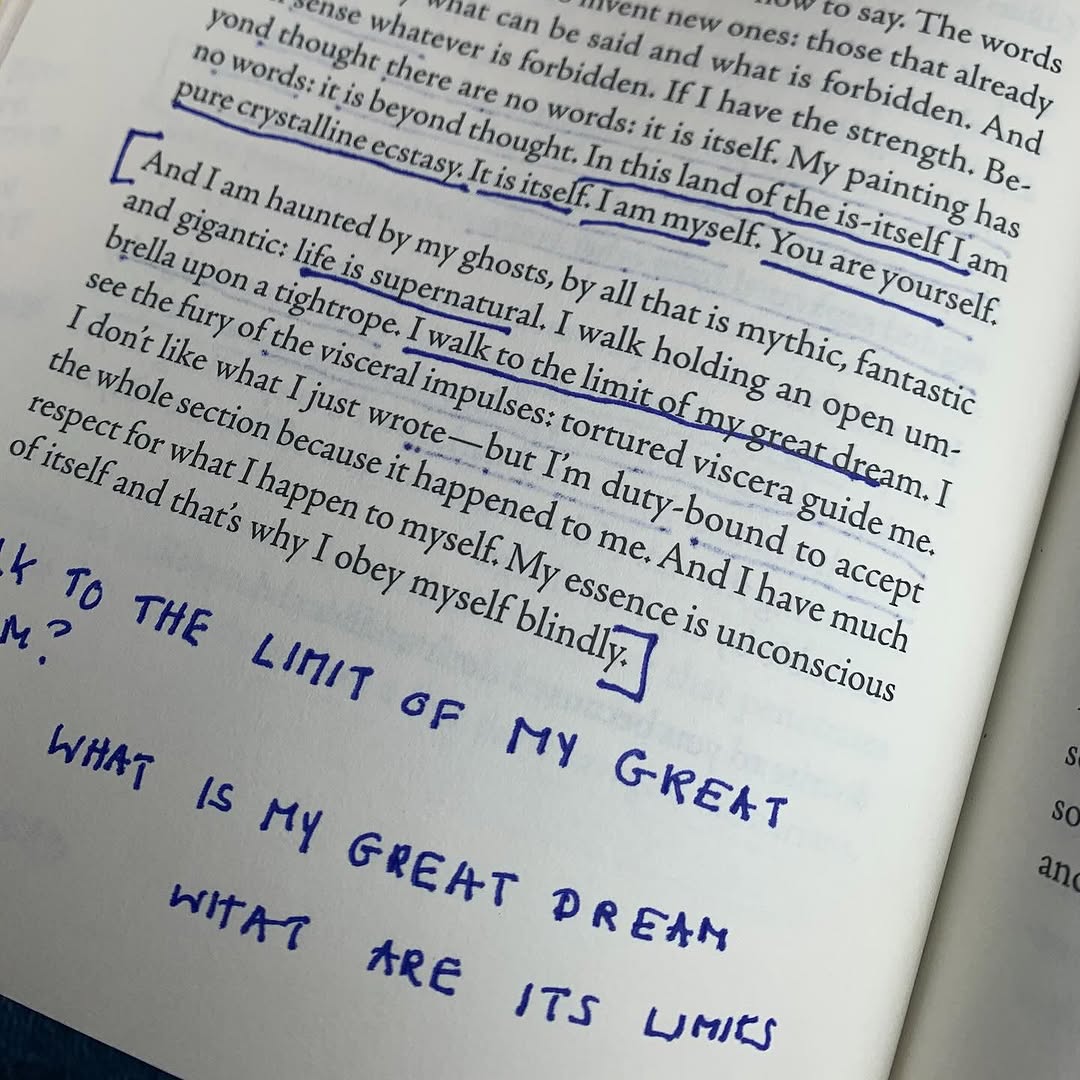 how to say. The words
invent new ones: those that already
what can be said and what is forbidden. And
sense whatever is forbidden. If I have the strength. Be-
yond thought there are no words: it is itself. My painting has
no words: it is beyond thought. In this land of the is-itself I am
pure crystalline ecstasy. It is itself. I am myself. You are yourself.
And I am haunted by my ghosts, by all that is mythic, fantastic
and gigantic: life is supernatural. I walk holding an open um-
brella upon a tightrope. I walk to the limit of my great dream. I
see the fury of the visceral impulses: tortured viscera guide me.
I don't like what I just wrote—but I'm duty-bound to accept
the whole section because it happened to me. And I have much
respect for what I happen to myself. My essence is unconscious
of itself and that's why I obey myself blindly.
LK TO THE LIMIT OF MY GREAT
M?
WHAT IS MY GREAT DREAM
WHAT ARE ITS LIMITS
and